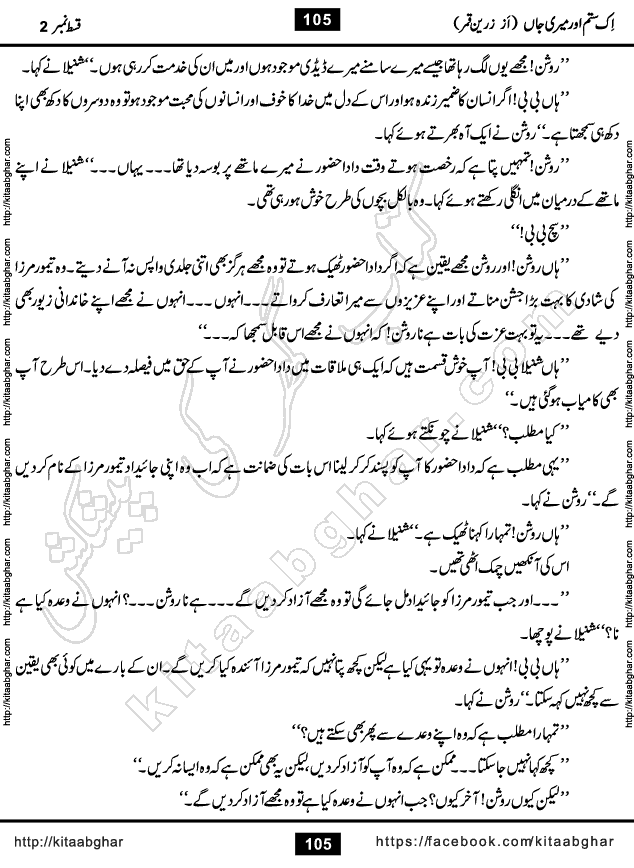 105
اِک ستم اور میری جاں (از زرین قمر)
قسط نمبر 2
’’روشن! مجھے یوں لگ رہا تھا جیسے میرے سامنے میرے ڈیڈی موجود ہوں اور میں ان کی خدمت کر رہی ہوں۔‘‘ شنیلا نے کہا۔
’’ہاں بی بی! اگر انسان کا ضمیر زندہ ہو اور اس کے دل میں خدا کا خوف اور انسانوں کی محبت موجود ہو تو وہ دوسروں کا دکھ بھی اپنا
دکھ ہی سمجھتا ہے۔‘‘ روشن نے ایک آہ بھرتے ہوئے کہا۔
’’روشن! تمہیں پتا ہے کہ رخصت ہوتے وقت دادا حضور نے میرے ماتھے پر بوسہ دیا تھا۔۔۔ یہاں۔۔۔‘‘ شنیلا نے اپنے
ماتھے کے درمیان میں انگلی رکھتے ہوئے کہا۔ وہ بالکل بچوں کی طرح خوش ہو رہی تھی۔
’’سچ بی بی!‘‘
’’ہاں روشن! اور روشن مجھے یقین ہے کہ اگر دادا حضور ٹھیک ہوتے تو وہ مجھے ہرگز بھی اتنی جلدی واپس نہ آنے دیتے۔ وہ تیمور مرزا
کی شادی کا بہت بڑا جشن مناتے اور اپنے عزیزوں سے میرا تعارف کرواتے۔۔۔ انہوں ۔۔۔ انہوں نے مجھے اپنے خاندانی زیور بھی
دیے تھے۔۔۔ یہ تو بہت عزت کی بات ہے نا روشن! کہ انہوں نے مجھے اس قابل سمجھا کہ۔۔۔‘‘
’’ہاں شنیلا بی بی! آپ خوش قسمت ہیں کہ ایک ہی ملاقات میں دادا حضور نے آپ کے حق میں فیصلہ دے دیا۔ اس طرح آپ
بھی کامیاب ہو گئی ہیں۔‘‘
’’کیا مطلب؟‘‘ شنیلا نے چونکتے ہوئے کہا۔
’’یہی مطلب ہے کہ دادا حضور کا آپ کو پسند کر کر لینا اس بات کی ضمانت ہے کہ اب وہ اپنی جائیداد تیمور مرزا کے نام کر دیں
گے۔‘‘ روشن نے کہا۔
’’ہاں روشن! تمہارا کہنا ٹھیک ہے۔‘‘ شنیلا نے کہا۔
اس کی آنکھیں چمک اٹھی تھیں۔
’’۔۔۔ اور جب تیمور مرزا کو جائیداد مل جائے گی تو وہ مجھے آزاد کر دیں گے۔۔۔ ہے نا روشن۔۔۔؟ انہوں نے وعدہ کیا ہے
نا؟‘‘ شنیلا نے پوچھا۔
’’ہاں بی بی! انہوں نے وعدہ تو یہی کیا ہے لیکن کچھ پتا نہیں کہ تیمور مرزا آئندہ کیا کریں گے۔ ان کے بارے میں کوئی بھی یقین
سے کچھ نہیں کہہ سکتا۔‘‘ روشن نے کہا۔
’’تمہارا مطلب ہے کہ وہ اپنے وعدے سے پھر بھی سکتے ہیں؟‘‘
’’کچھ کہا نہیں جا سکتا۔۔۔ ممکن ہے کہ وہ آپ کو آزاد کر دیں، لیکن یہ بھی ممکن ہے کہ وہ ایسا نہ کریں۔‘‘
’’لیکن کیوں روشن! آخر کیوں؟ جب انہوں نے وعدہ کیا ہے تو وہ مجھے آزاد کر دیں گے۔‘‘
کتاب گھر کی پیشکش
kitaabghar.com
http://kitaabghar.com
http://kitaabghar.com
http://kitaabghar.com
http://kitaabghar.com
http://kitaabghar.com
http://kitaabghar.com
http://kitaabghar.com
http://kitaabghar.com
http://kitaabghar.com
http://kitaabghar.com
http://kitaabghar.com
http://kitaabghar.com
http://kitaabghar
105
https://facebook.com/kitaabghar